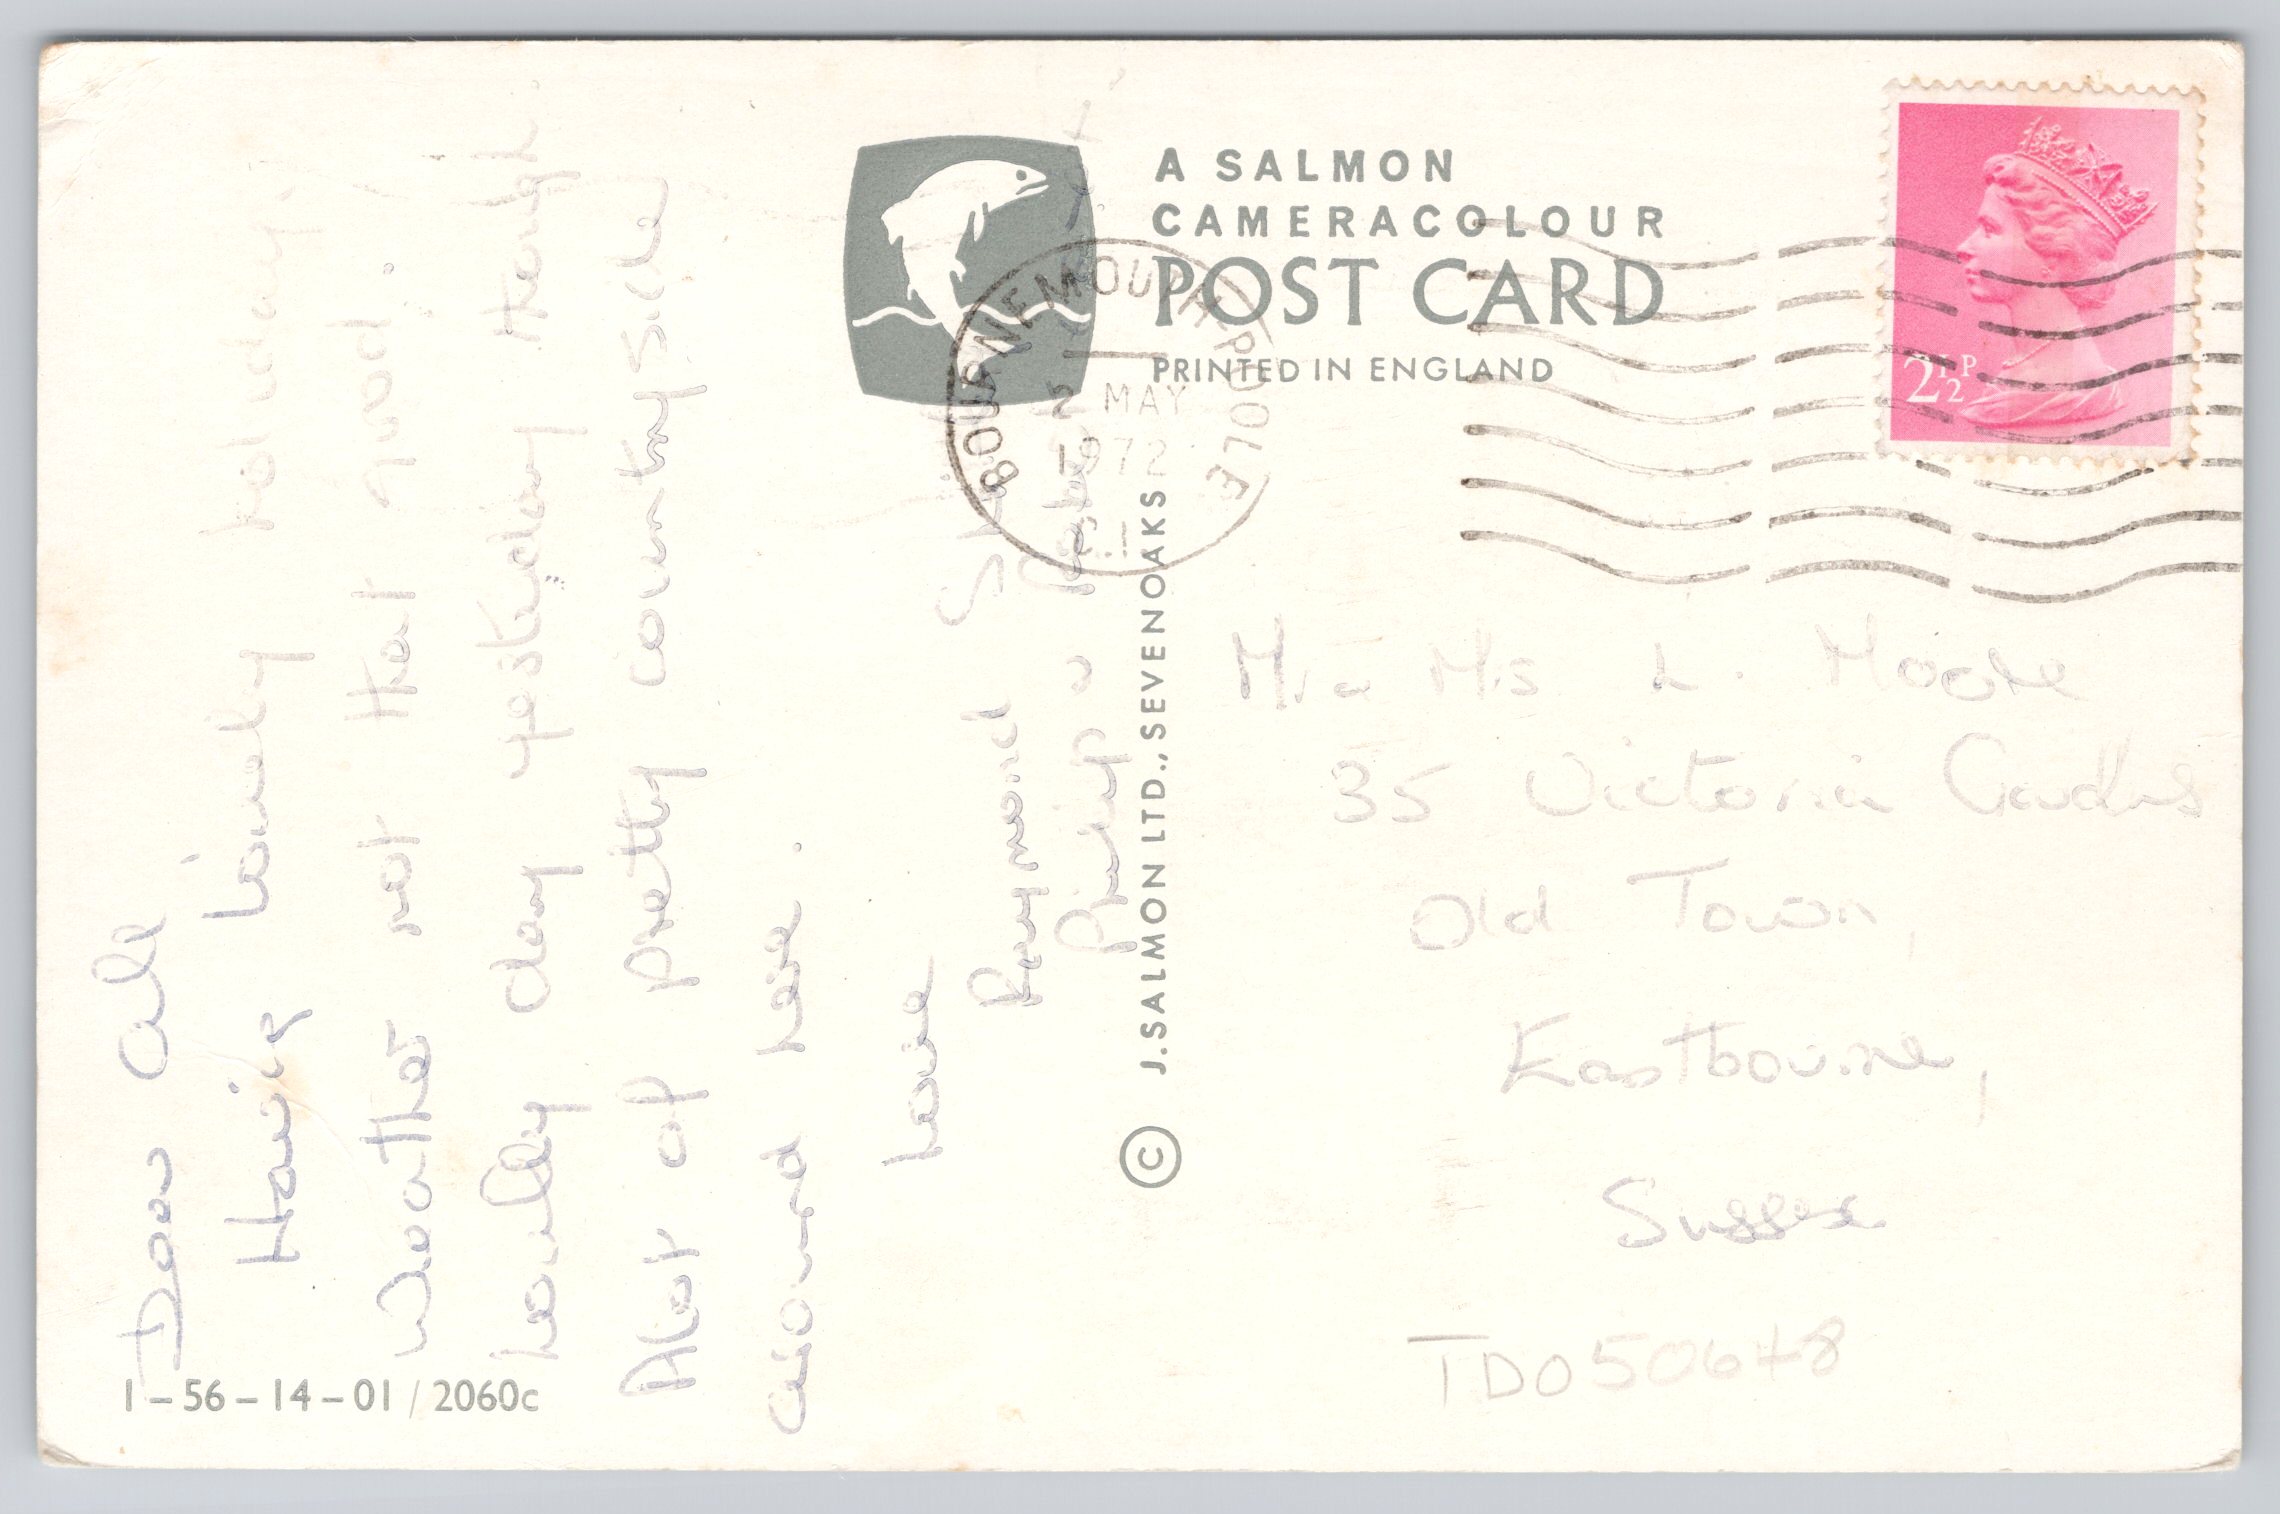 Dear All
Having Lovely holiday.
Weather not that good.
Lovely day yesterday though.
Alot of pretty countryside
around here.
Love
Raymond
Philip
A SALMON
CAMERACOLOUR
POST CARD
PRINTED IN ENGLAND
BOURNEMOUTH POOLE
2 MAY
1972
2½P
© J. SALMON LTD., SEVENOAKS
Mr & Mrs L. Moore
35 Victoria Gardens
Old Town,
Eastbourne,
Sussex
TD050648
1-56-14-01/2060c